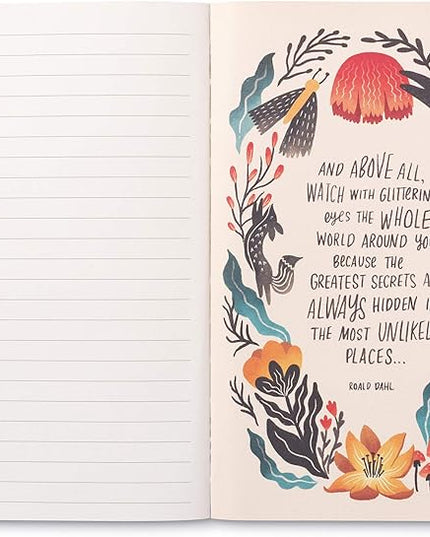 AND ABOVE ALL,
WATCH WITH GLITTERIN
eyes THE WHOLE
WORLD AROUND YO
because THE
GREATEST SECRETS A
ALWAYS HIDDEN I
THE MOST UNLIKEL
PLACES...
ROALD DAHL